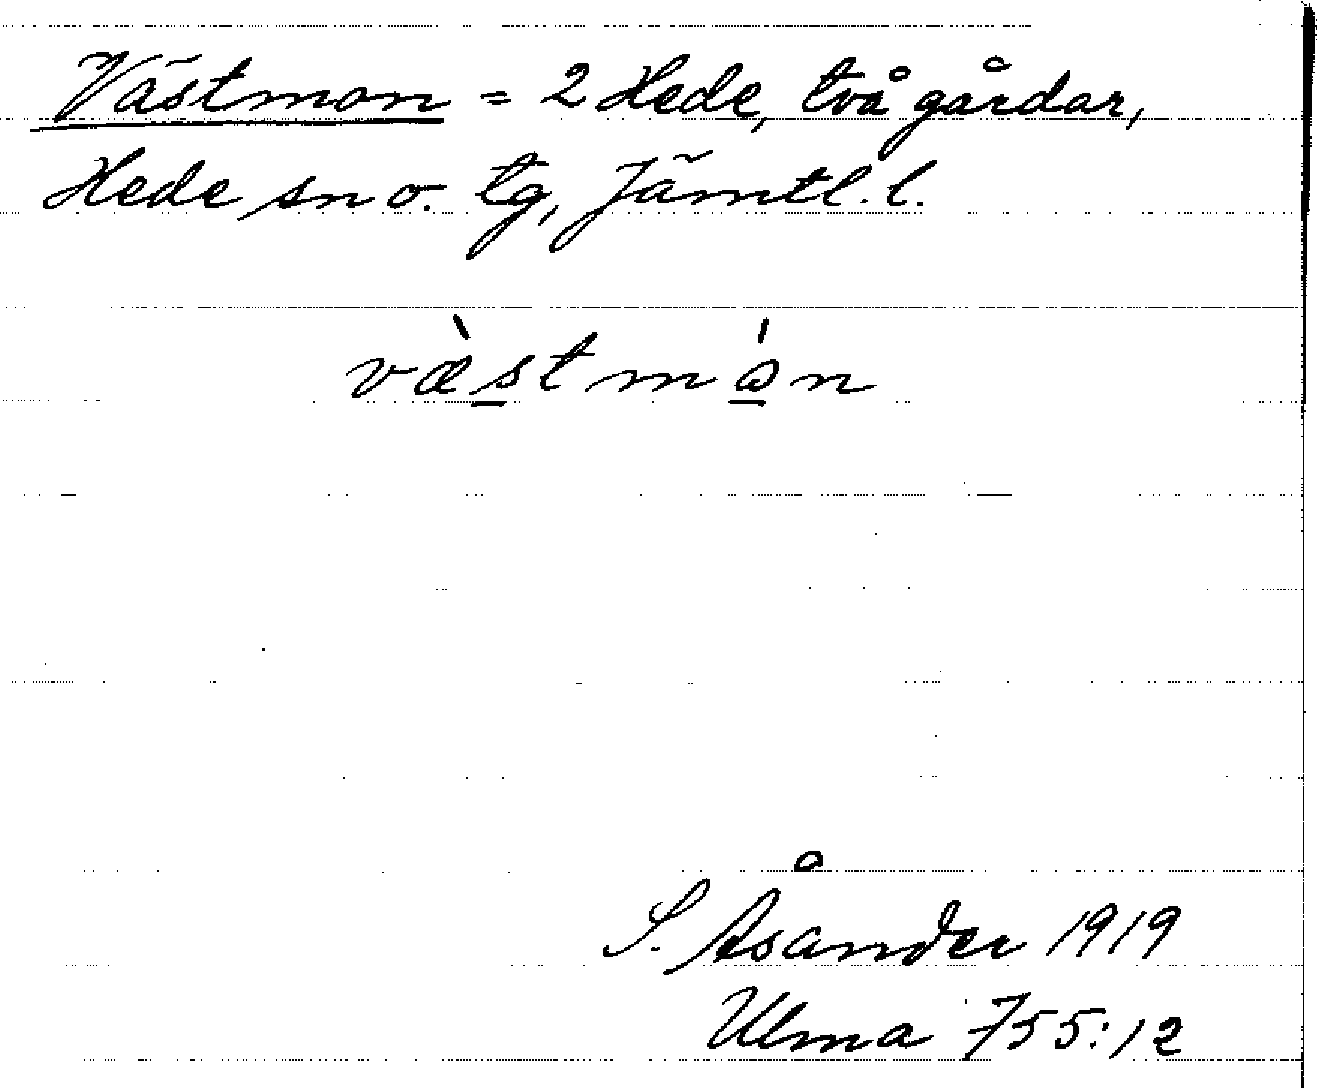 Västmon = 2 Hede, två gårdar,
Hede sn o. tg, Jämtl. l.
væ̀stmón
S. Åsander 1919
Ulma 755:12